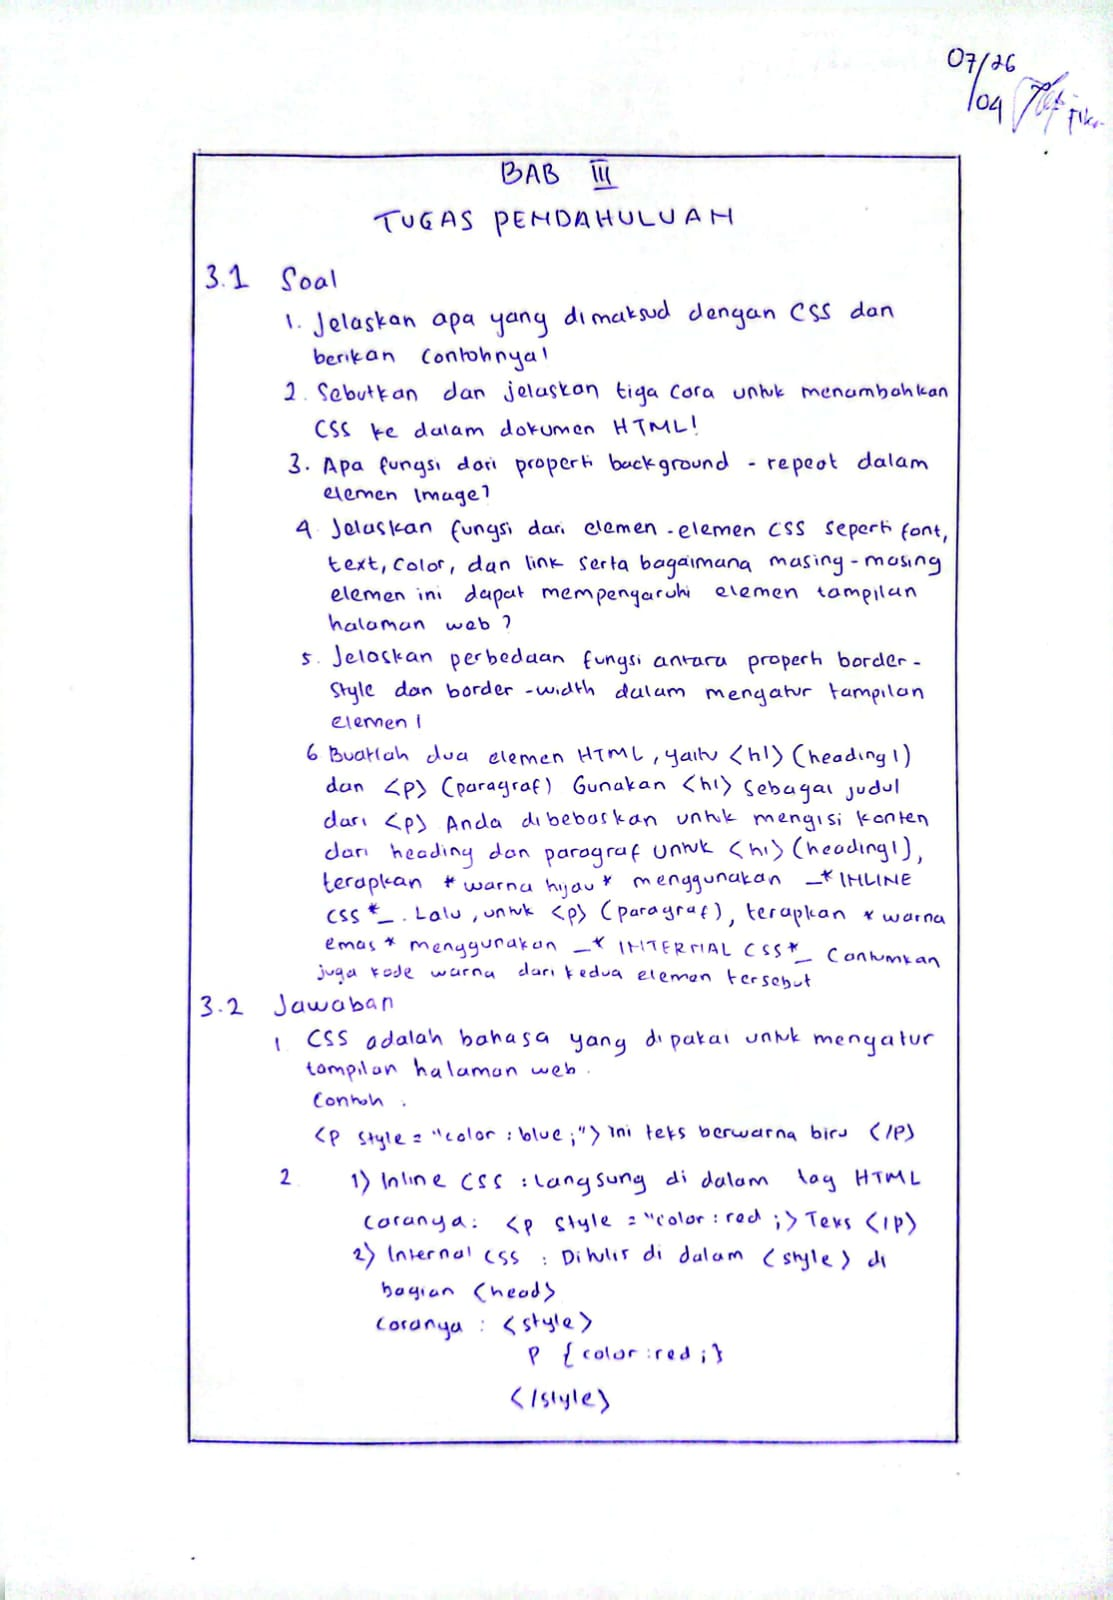 07/26
/04
BAB III
TUGAS PENDAHULUAN
3.1 Soal
1. Jelaskan apa yang dimaksud dengan CSS dan
berikan contohnya!
2. Sebutkan dan jelaskan tiga cara untuk menambahkan
CSS ke dalam dokumen HTML!
3. Apa fungsi dari properti background - repeat dalam
elemen Image?
4. Jelaskan fungsi dari elemen-elemen CSS seperti font,
text, color, dan link serta bagaimana masing-masing
elemen ini dapat mempengaruhi elemen tampilan
halaman web?
5. Jelaskan perbedaan fungsi antara properti border-
style dan border-width dalam mengatur tampilan
elemen!
6 Buatlah dua elemen HTML, yaitu <h1> (heading 1)
dan <p> (paragraf) Gunakan <h1> sebagai judul
dari <p> Anda dibebaskan untuk mengisi konten
dari heading dan paragraf untuk <h1> (heading1),
terapkan *warna hijau* menggunakan _*INLINE
CSS*_. Lalu, untuk <p> (paragraf), terapkan *warna
emas* menggunakan _*INTERNAL CSS*_ Cantumkan
juga kode warna dari kedua elemen tersebut
3.2 Jawaban
1 CSS adalah bahasa yang dipakai untuk mengatur
tampilan halaman web.
Contoh .
<p style = "color : blue ;"> ini teks berwarna biru </p>
2 1) Inline CSS : Langsung di dalam tag HTML
caranya: <p style = "color : red ;> Teks </p>
2) Internal CSS : Ditulis di dalam <style> di
bagian <head>
caranya : <style>
P {color :red ;}
</style>